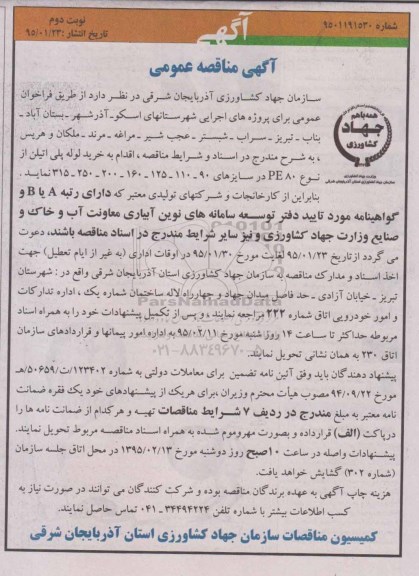 شماره ۹۵۰۱۱۹۱۵۳۰
آگهی
نوبت دوم
تاریخ انتشار: ۹۵/۰۱/۲۳
آگهی مناقصه عمومی
همه با هم
جهاد
کشاورزی
سازمان جهاد کشاورزی آذربایجان شرقی در نظر دارد از طریق فراخوان
عمومی برای پروژه های اجرایی شهرستانهای اسکو-آذرشهر-بستان آباد-
بناب - تبریز- سراب - شبستر - عجب شیر - مراغه - مرند - ملکان و هریس
، به شرح مندرج در اسناد و شرایط مناقصه ، اقدام به خرید لوله پلی اتیلن از
نوع PE 80 در سایزهای ۹۰ - ۱۱۰ - ۱۲۵ - ۱۶۰ - ۲۰۰ - ۲۵۰ - ۳۱۵ نماید .
بنابراین از کارخانجات و شرکتهای تولیدی معتبر که دارای رتبه A یا B و
گواهینامه مورد تایید دفتر توسعه سامانه های نوین آبیاری معاونت آب و خاک و
صنایع وزارت جهاد کشاورزی و نیز سایر شرایط مندرج در اسناد مناقصه باشند، دعوت
می گردد از تاریخ ۹۵/۰۱/۲۳ لغایت مورخ ۹۵/۰۱/۳۰ در اوقات اداری (به غیر از ایام تعطیل) جهت
اخذ اسناد و مدارک مناقصه به سازمان جهاد کشاورزی استان آذربایجان شرقی واقع در : شهرستان
تبریز - خیابان آزادی - حد فاصل میدان جهاد و چهارراه لاله ساختمان شماره یک ، اداره تدارکات
و امور خودرویی اتاق شماره ۲۲۲ مراجعه نمایند ، و پس از تکمیل پیشنهادات خود را به همراه اسناد
مربوطه حداکثر تا ساعت ۱۴ روز شنبه مورخ ۹۵/۰۲/۱۱ به اداره امور پیمانها و قراردادهای سازمان
اتاق ۲۳۰ به همان نشانی تحویل نمایند.
پیشنهاد دهندگان باید وفق آئین نامه تضمین برای معاملات دولتی به شماره ۱۲۳۴۰۲/ت/۵۰۶۵۹هـ
مورخ ۹۴/۰۹/۲۲ مصوب هیأت محترم وزیران ،برای هریک از پیشنهادهای خود یک فقره ضمانت
نامه معتبر به مبلغ مندرج در ردیف ۷ شرایط مناقصات تهیه و هرکدام از ضمانت نامه ها را
درپاکت (الف) قرارداده و بصورت مهروموم شده به همراه اسناد مناقصه مربوط تحویل نمایند.
پیشنهادات واصله در ساعت ۱۰صبح روز دوشنبه مورخ ۱۳۹۵/۰۲/۱۳ در محل اتاق جلسه سازمان
(شماره ۳۰۲) گشایش خواهد یافت.
هزینه چاپ آگهی به عهده برندگان مناقصه بوده و شرکت کنندگان می توانند در صورت نیاز به
کسب اطلاعات بیشتر با شماره تلفن ۳۴۴۹۴۲۲۴ - ۰۴۱ تماس حاصل نمایند.
کمیسیون مناقصات سازمان جهاد کشاورزی استان آذربایجان شرقی
ParsNamadData
۰۲۱-۸۸۳۴۹۶۷۰